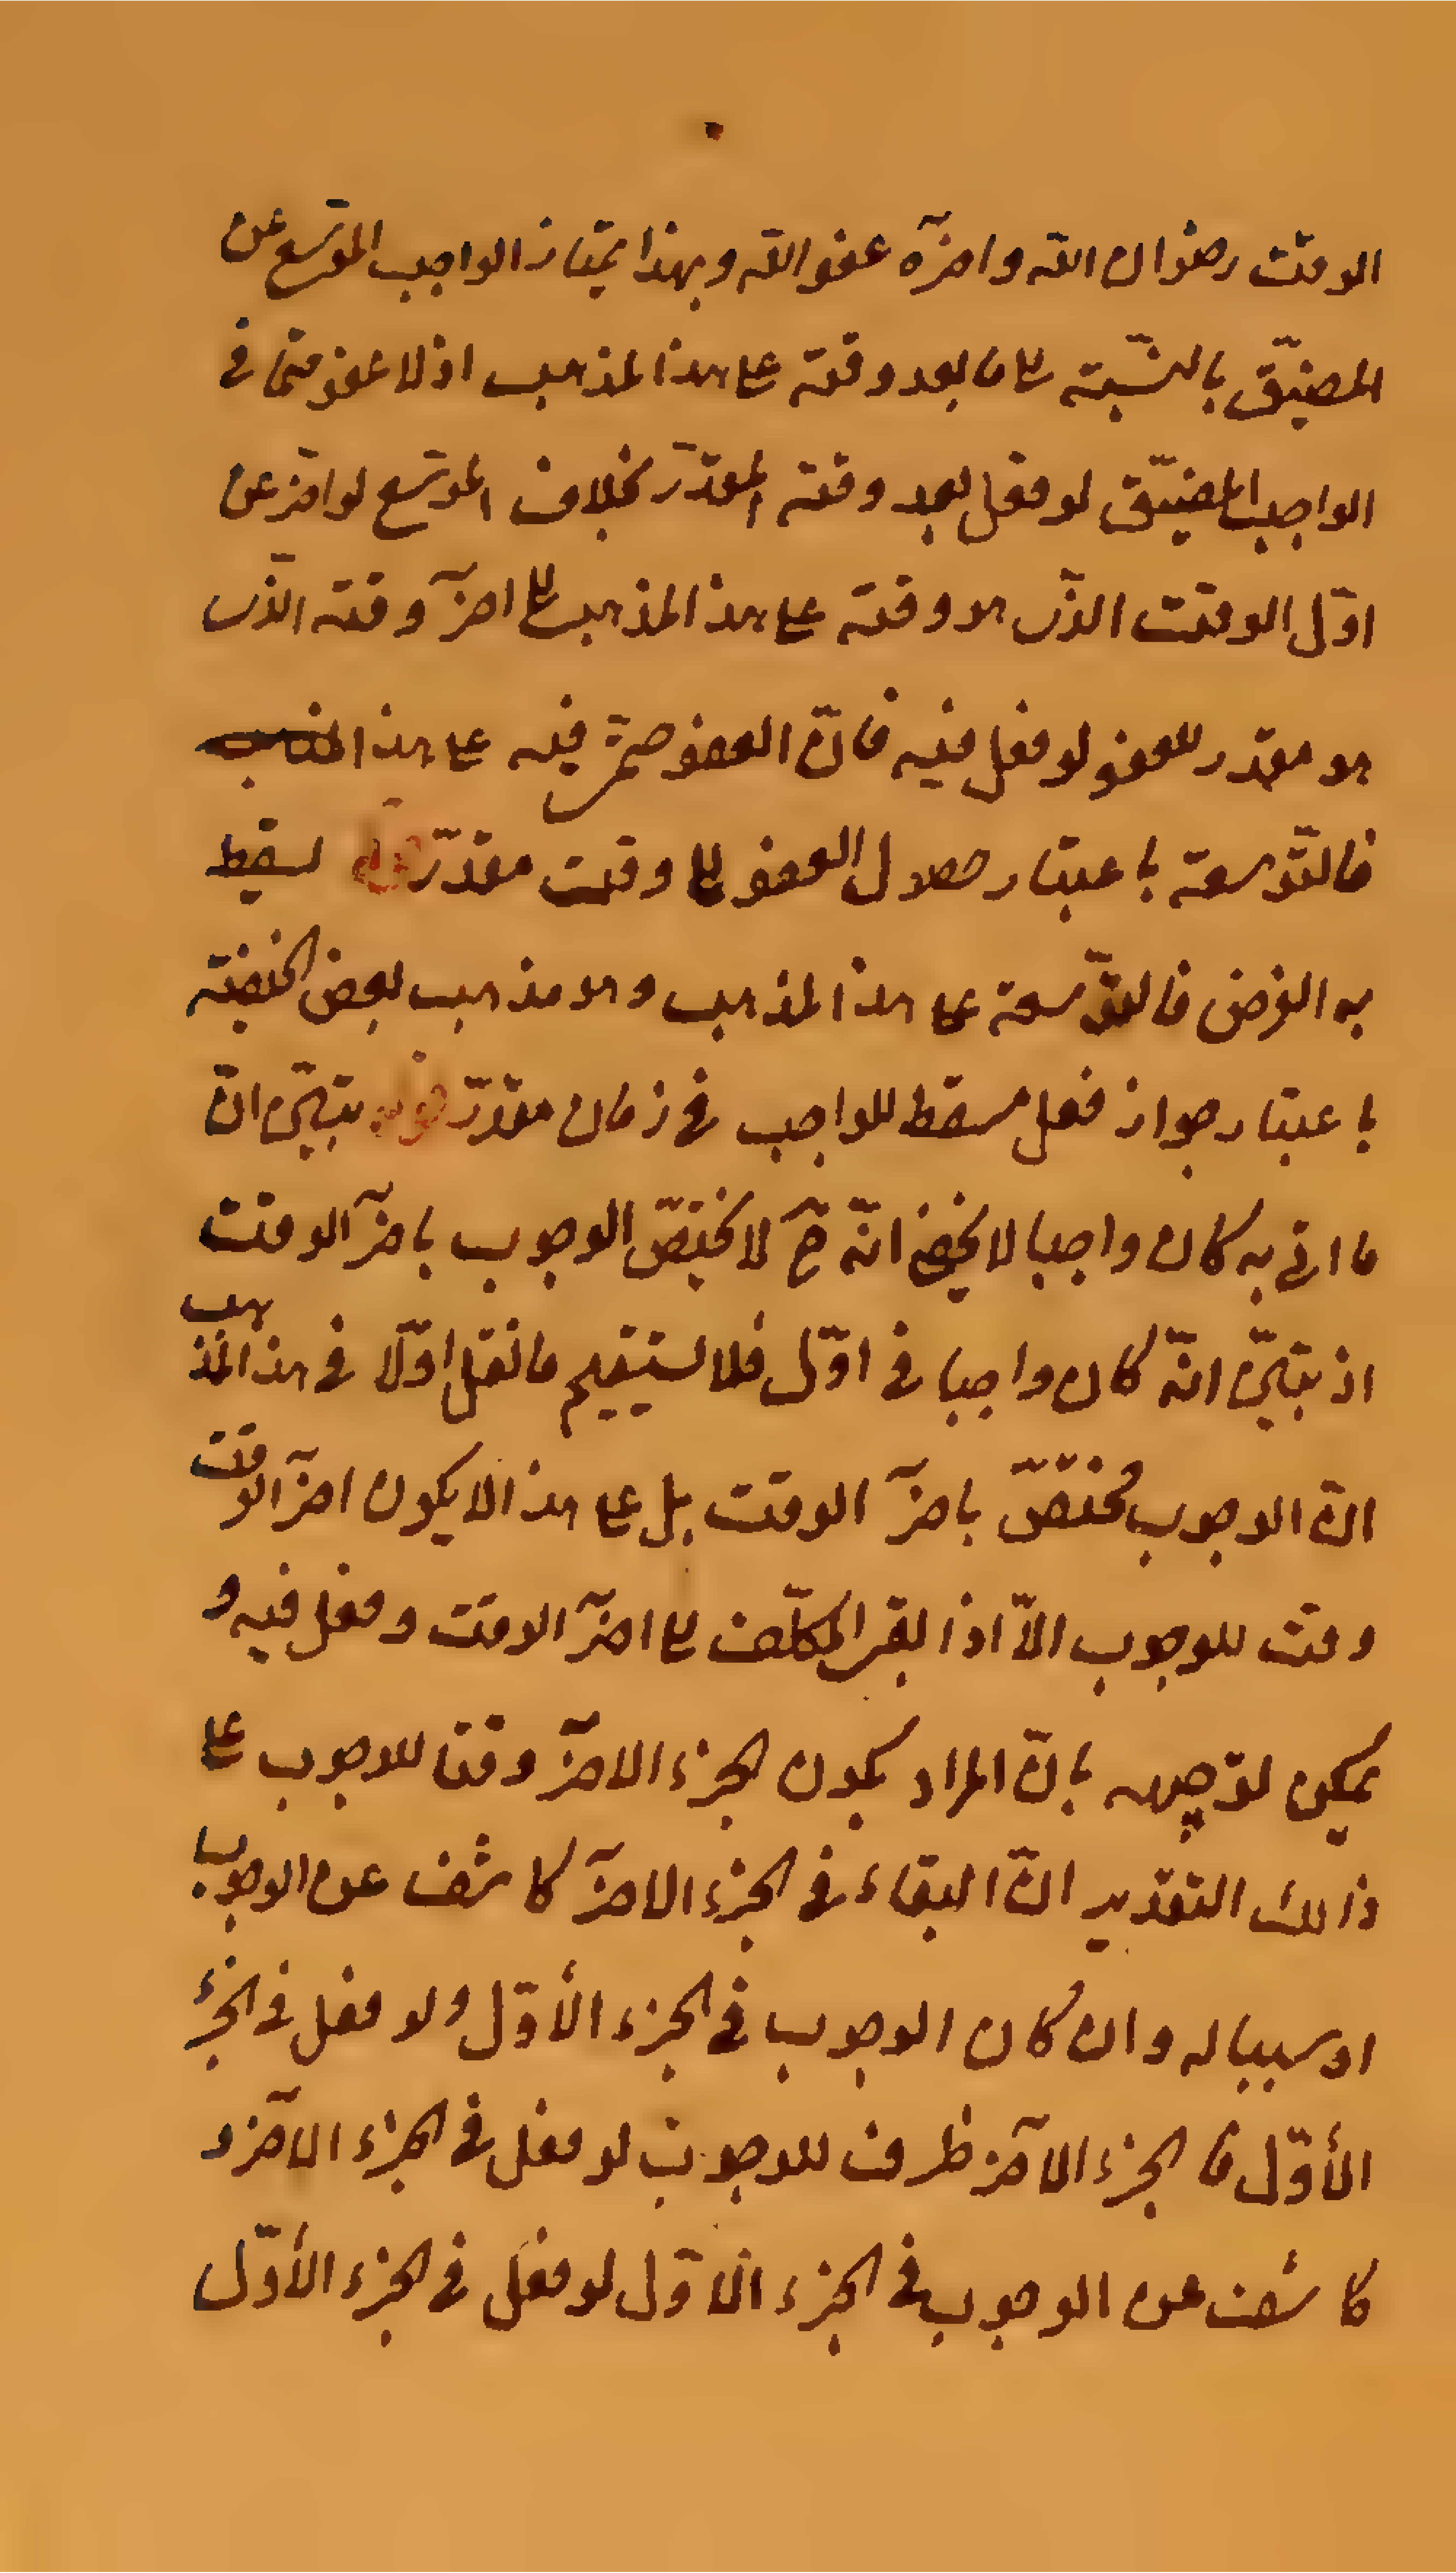 الوقت رضوان الله وآخره عفو الله وبهذا يمتاز الواجب الموسّع عن
المضيّق بالنسبة الى ما بعد وقته على هذا المذهب اذ لا عفو حتما فى
الواجب المضيّق لو فعل بعد وقته المقدّر بخلاف الموسّع لو اخّر عن
اوّل الوقت الذى هو وقته على هذا المذهب الى اخر وقته الذى
هو مقدّر للعفو لو فعل فيه فانّ العفو فيه على هذا المذهب
فالتوسعة باعتبار حصول العفو الى وقت مقدّر يسقط
به الفرض فالتوسعة على هذا المذهب وهو مذهب بعض الحنفيّة
باعتبار جواز فعل مسقط للواجب فى زمان مقدّر قوله يتبيّن انّ
ما اتى به كان واجبا لا يخفى انّه ح لا يختصّ الوجوب باخر الوقت
اذ يتبيّن انّه كان واجبا فى اوّل فلا يستقيم ما نقل اوّلا فى هذا المذهب
انّ الوجوب مختصّ باخر الوقت بل على هذا لا يكون اخر الوقت
وقت للوجوب الّا اذا بقى المكلّف الى اخر الوقت وفعل فيه و
يمكن توجيهه بانّ المراد بكون الجزء الاخر وقتا للوجوب على
ذالك التقدير انّ البقاء فى الجزء الاخر كاشف عن الوجوب
او سببا له وان كان الوجوب فى الجزء الأوّل ولو فعل فى الجزء
الأوّل فا لجزء الاخر ظرف للوجوب لو فعل فى الجزء الاخر و
كاشف عن الوجوب فى الجزء الاوّل لو فعل فى الجزء الأوّل